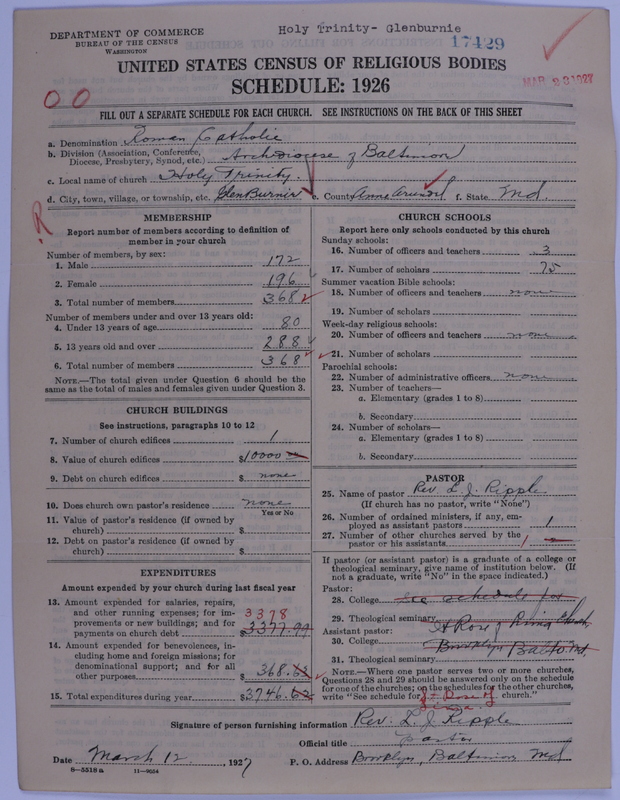 Holy Trinity- Glenburnie
DEPARTMENT OF COMMERCE
BUREAU OF THE CENSUS
WASHINGTON
17429
UNITED STATES CENSUS OF RELIGIOUS BODIES
SCHEDULE: 1926
MAR 23 1927
OO
FILL OUT A SEPARATE SCHEDULE FOR EACH CHURCH. SEE INSTRUCTIONS ON THE BACK OF THIS SHEET
a. Denomination Roman Catholic
b. Division (Association, Conference, Diocese, Presbytery, Synod, etc.) Archdiocese of Baltimore
c. Local name of church Holy Trinity.
d. City, town, village, or township, etc. Glen Burnie e. County Anne Arundel f. State Md.
R
MEMBERSHIP
Report number of members according to definition of
member in your church
Number of members, by sex:
1. Male 172
2. Female 196
3. Total number of members 368
Number of members under and over 13 years old:
4. Under 13 years of age 80
5. 13 years old and over 288
6. Total number of members 368
NOTE.—The total given under Question 6 should be the
same as the total of males and females given under Question 3.
CHURCH BUILDINGS
See instructions, paragraphs 10 to 12
7. Number of church edifices 1
8. Value of church edifices $10000
9. Debt on church edifices $ none
10. Does church own pastor's residence none
Yes or No
11. Value of pastor's residence (if owned by
church) $
12. Debt on pastor's residence (if owned by
church) $
EXPENDITURES
Amount expended by your church during last fiscal year
13. Amount expended for salaries, repairs,
and other running expenses; for im-
provements or new buildings; and for
payments on church debt 3378 $3377.99
14. Amount expended for benevolences, in-
cluding home and foreign missions; for
denominational support; and for all
other purposes $ 368.63
15. Total expenditures during year $3746.62
CHURCH SCHOOLS
Report here only schools conducted by this church
Sunday schools:
16. Number of officers and teachers 3
17. Number of scholars 75
Summer vacation Bible schools:
18. Number of officers and teachers none
19. Number of scholars
Week-day religious schools:
20. Number of officers and teachers none
21. Number of scholars
Parochial schools:
22. Number of administrative officers none
23. Number of teachers—
a. Elementary (grades 1 to 8)
b. Secondary
24. Number of scholars—
a. Elementary (grades 1 to 8)
b. Secondary
PASTOR
25. Name of pastor Rev. L. J. Ripple
(If church has no pastor, write "None")
26. Number of ordained ministers, if any, em-
ployed as assistant pastors 1
27. Number of other churches served by the
pastor or his assistants 1
If pastor (or assistant pastor) is a graduate of a college or
theological seminary, give name of institution below. (If
not a graduate, write "No" in the space indicated.)
Pastor:
28. College see schedule for
29. Theological seminary St Rose of Lima Church
Assistant pastor:
30. College Brooklyn Balto Md.
31. Theological seminary
NOTE.—Where one pastor serves two or more churches,
Questions 28 and 29 should be answered only on the schedule
for one of the churches; on the schedules for the other churches,
write "See schedule for St Rose of Lima church."
Signature of person furnishing information Rev. L. J. Ripple
Official title Pastor
Date March 12, 1927 P. O. Address Brooklyn, Baltimore Md
8—5518 a 11—9664